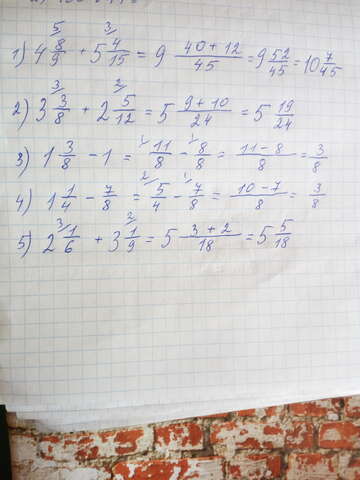 1) 4 8/9 + 5 4/15 = 9 (40 + 12)/45 = 9 52/45 = 10 7/45
2) 3 3/8 + 2 5/12 = 5 (9 + 10)/24 = 5 19/24
3) 1 3/8 - 1 = 11/8 - 8/8 = (11 - 8)/8 = 3/8
4) 1 1/4 - 7/8 = 5/4 - 7/8 = (10 - 7)/8 = 3/8
5) 2 1/6 + 3 1/9 = 5 (3 + 2)/18 = 5 5/18